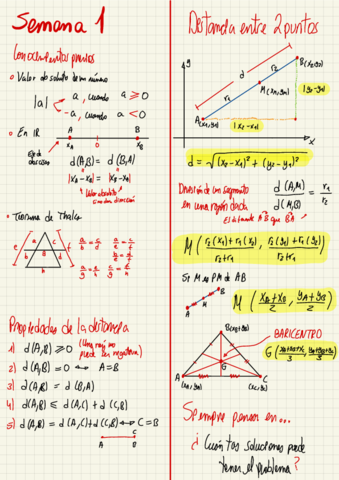 Semana 1
Conocimientos previos
• Valor absoluto de un número
|a| a, cuando a ⩾ 0
-a, cuando a < 0
• En IR
A B
x_A 0 x_B
Eje de
d(A,B) = d(B,A)
|x_A - x_B| = |x_B - x_A|
Valor absoluto
• Teorema de Thales
a c
e d B f
b h d
a/b = c/d a/e = c/f
b/e = d/f
a/g = e/h c/g = f/h
Propiedades de la distancia
1) d(A,B) ⩾ 0 (Una raíz no puede ser negativa)
2) d(A,B) = 0 ↔ A=B
3) d(A,B) = d(B,A)
4) d(A,B) ⩽ d(A,C) + d(C,B)
5) d(A,B) = d(A,C)+d(C,B) ↔ C=B
A C B
Distancia entre 2 puntos
y
B(x₂,y₂)
d r₂
M(x_M,y_M)
r₁ |y₂-y₁|
A(x₁,y₁) |x₂-x₁|
x
d = √((x₂-x₁)² + (y₂-y₁)²)
División de un segmento
en una razón dada
d(A,M)/d(M,B) = r₁/r₂
Es distante AB que BA
M( (r₂(x₁)+r₁(x₂))/(r₂+r₁) , (r₂(y₁)+r₁(y₂))/(r₂+r₁) )
Si M es PM de AB
A M B
M( (x_A+x_B)/2 , (y_A+y_B)/2 )
B(x_B,y_B)
BARICENTRO
G( (x_A+x_B+x_C)/3 , (y_A+y_B+y_C)/3 )
G
A (x_A,y_A) C (x_C,y_C)
Siempre pensar en...
¿Cuántas soluciones puede
tener el problema?